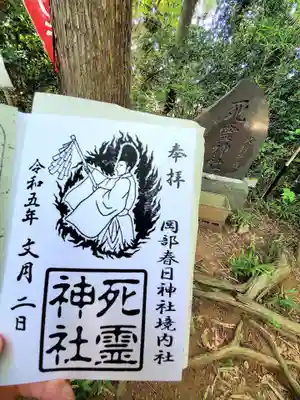 奉拝
岡部春日神社境内社
死霊
神社
令和五年 文月 二日
死霊神社